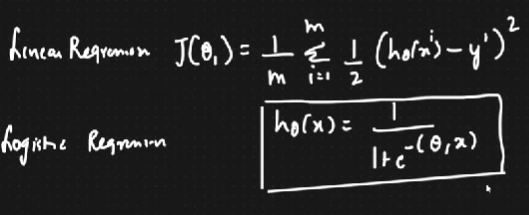 Linear Regression J(θ₁) = 1/m Σᵢ₌₁ᵐ 1/2 (hθ(xⁱ) - yⁱ)²
Logistic Regression hθ(x) = 1/(1+e^-(θ₁x))